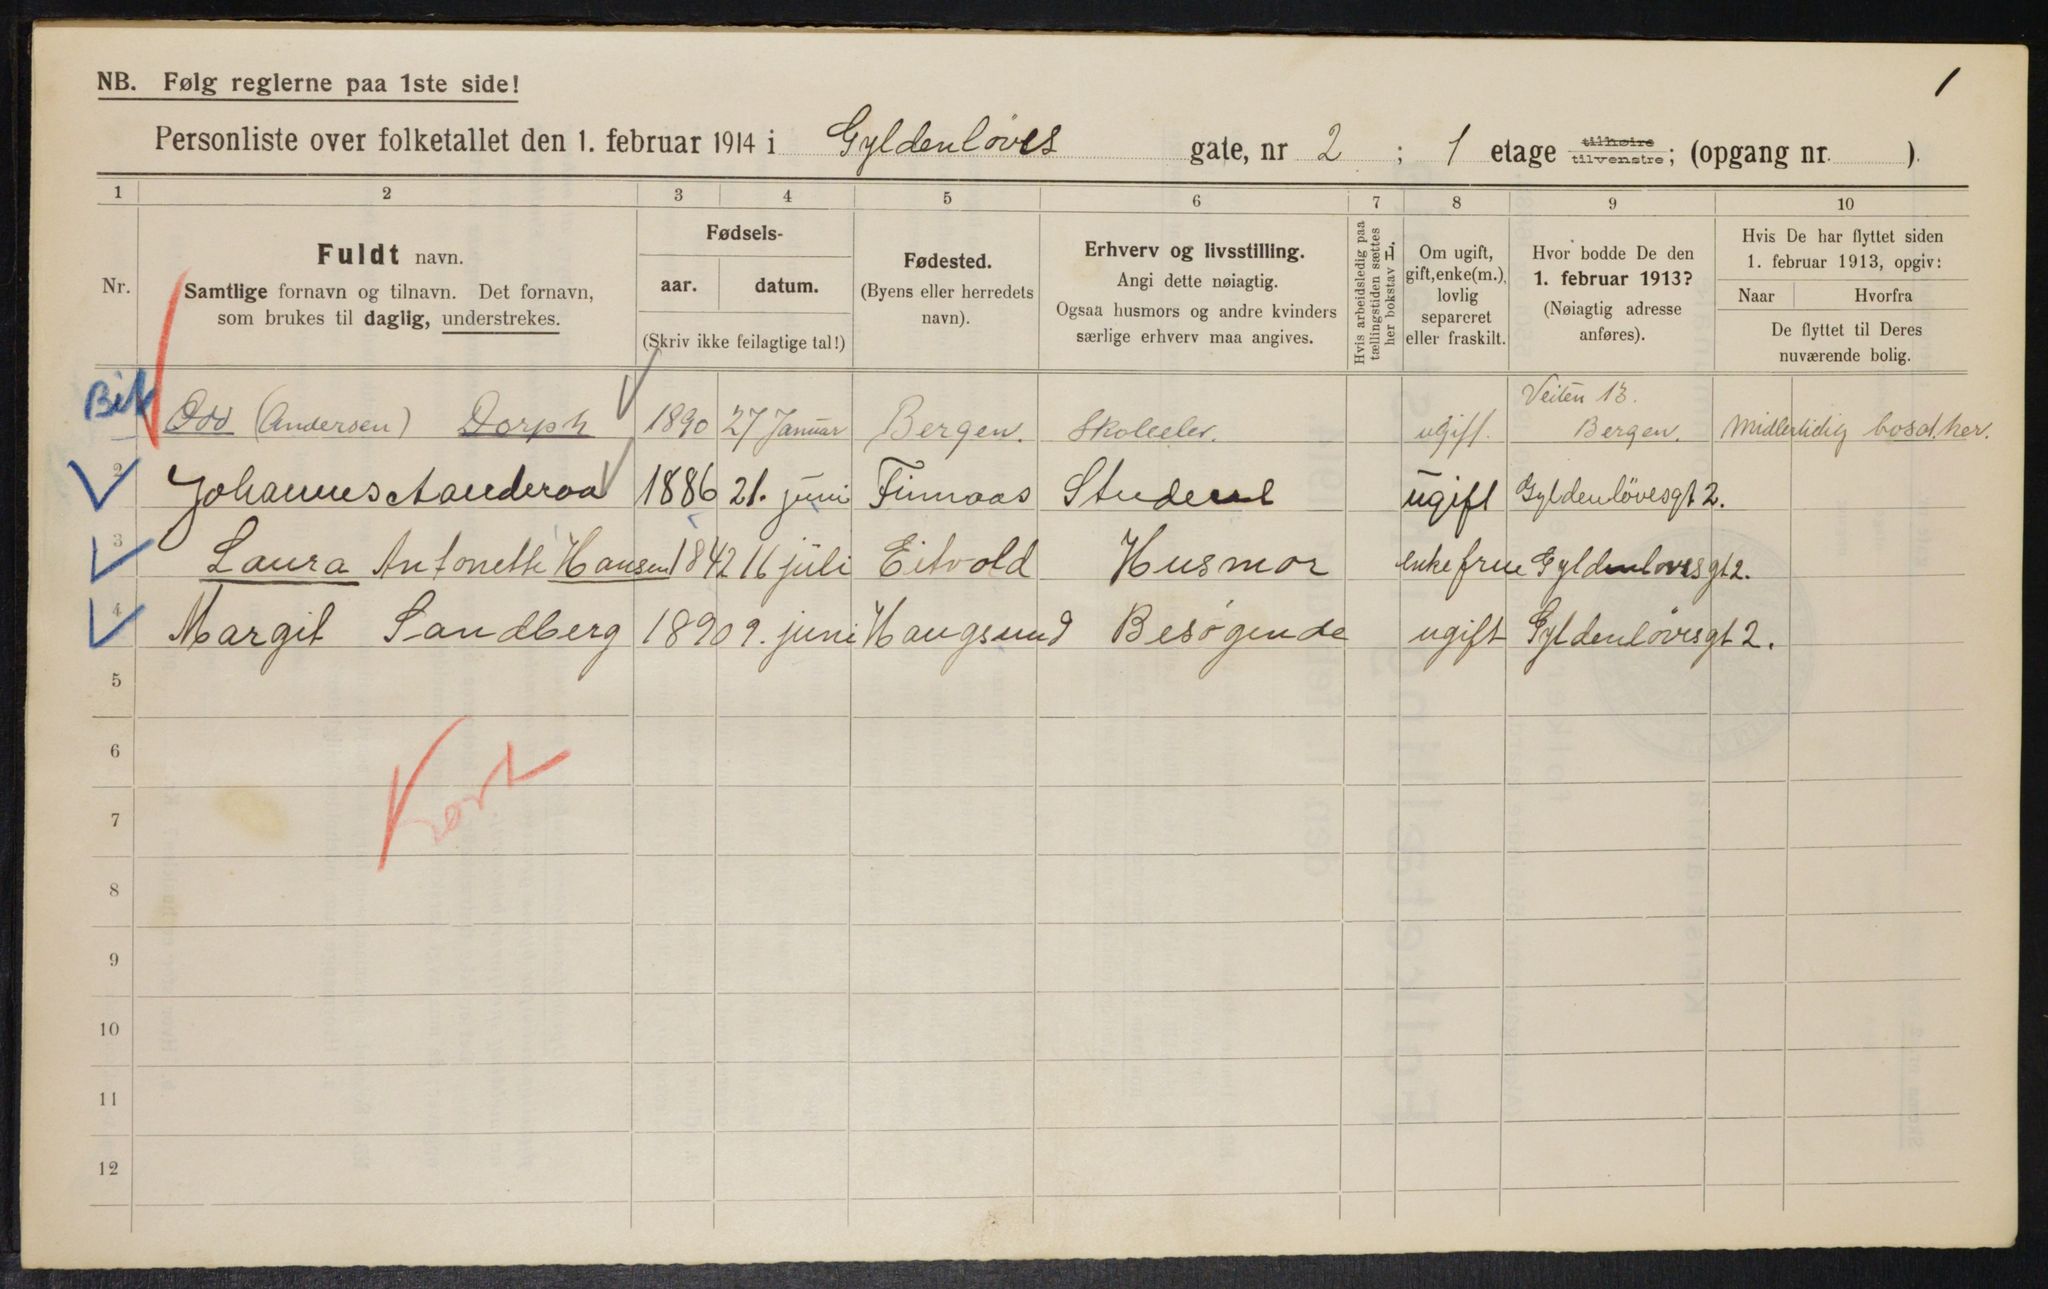 1
NB. Følg reglerne paa 1ste side!
Personliste over folketallet den 1. februar 1914 i Gyldenløves gate, nr 2 ; 1 etage tilhøire tilvenstre; (opgang nr. ).
1 2 3 4 5 6 7 8 9 10
Nr.
Fuldt navn.
Samtlige fornavn og tilnavn. Det fornavn,
som brukes til daglig, understrekes.
Fødsels-
aar. datum.
(Skriv ikke feilagtige tal!)
Fødested.
(Byens eller herredets
navn).
Erhverv og livsstilling.
Angi dette nøiagtig.
Ogsaa husmors og andre kvinders
særlige erhverv maa angives.
Hvis arbeidsledig paa
tællingstiden sættes
her bokstav L.
Om ugift,
gift, enke(m.),
lovlig
separeret
eller fraskilt.
Hvor bodde De den
1. februar 1913?
(Nøiagtig adresse
anføres).
Hvis De har flyttet siden
1. februar 1913, opgiv:
Naar Hvorfra
De flyttet til Deres
nuværende bolig.
Veiten 13.
Odd (Andersen) Dorph 1890 27 Januar Bergen. Skoleelev. ugift. Bergen. Midlertidig bosat her.
2 Johannes Aanderaa 1886 21. juni Finnaas Student ugift Gyldenløvesgt 2.
3 Laura Antonette Hansen 1842 16 juli Eitvold Husmor enkefrue Gyldenløvesgt 2.
4 Margit Sandberg 1890 9. juni Haugsund Besøgende ugift Gyldenløvesgt 2.
5
6
Kort
7
8
9
10
11
12